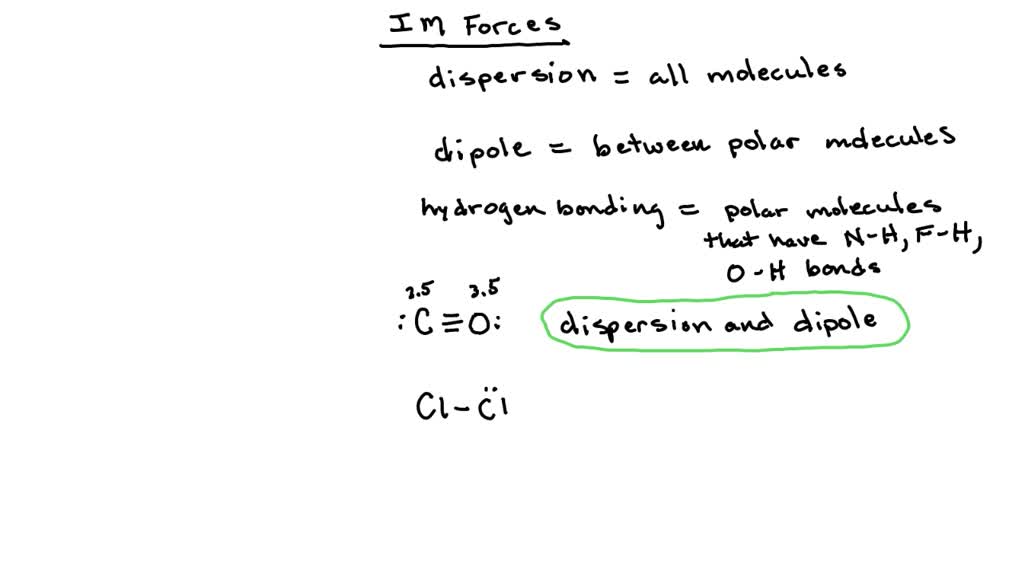 IM Forces
dispersion = all molecules
dipole = between polar molecules
hydrogen bonding = polar molecules
that have N-H, F-H,
O-H bonds
2.5 3.5
:C≡O: dispersion and dipole
Cl-C̈l